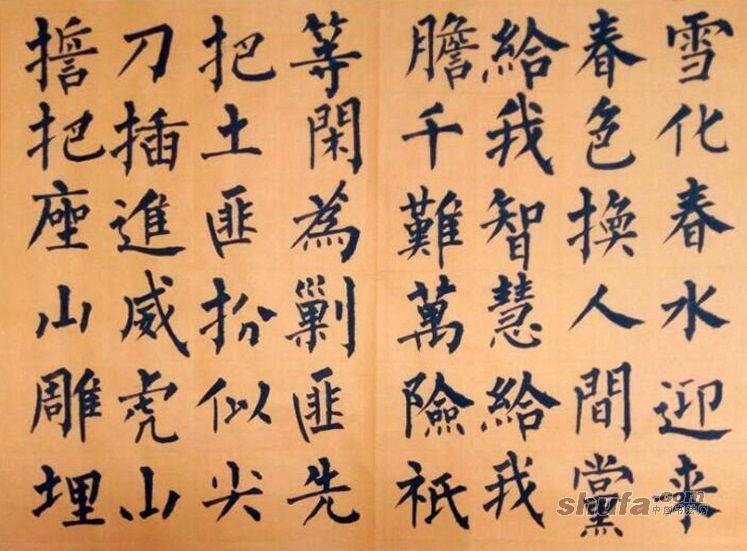 雪化春水迎来
春色换人間黨
給我智慧給我
膽千難萬險衹
等閑為剿匪先
把土匪扮似尖
刀插進威虎山
誓把座山雕埋
shufa.com
中国书法网